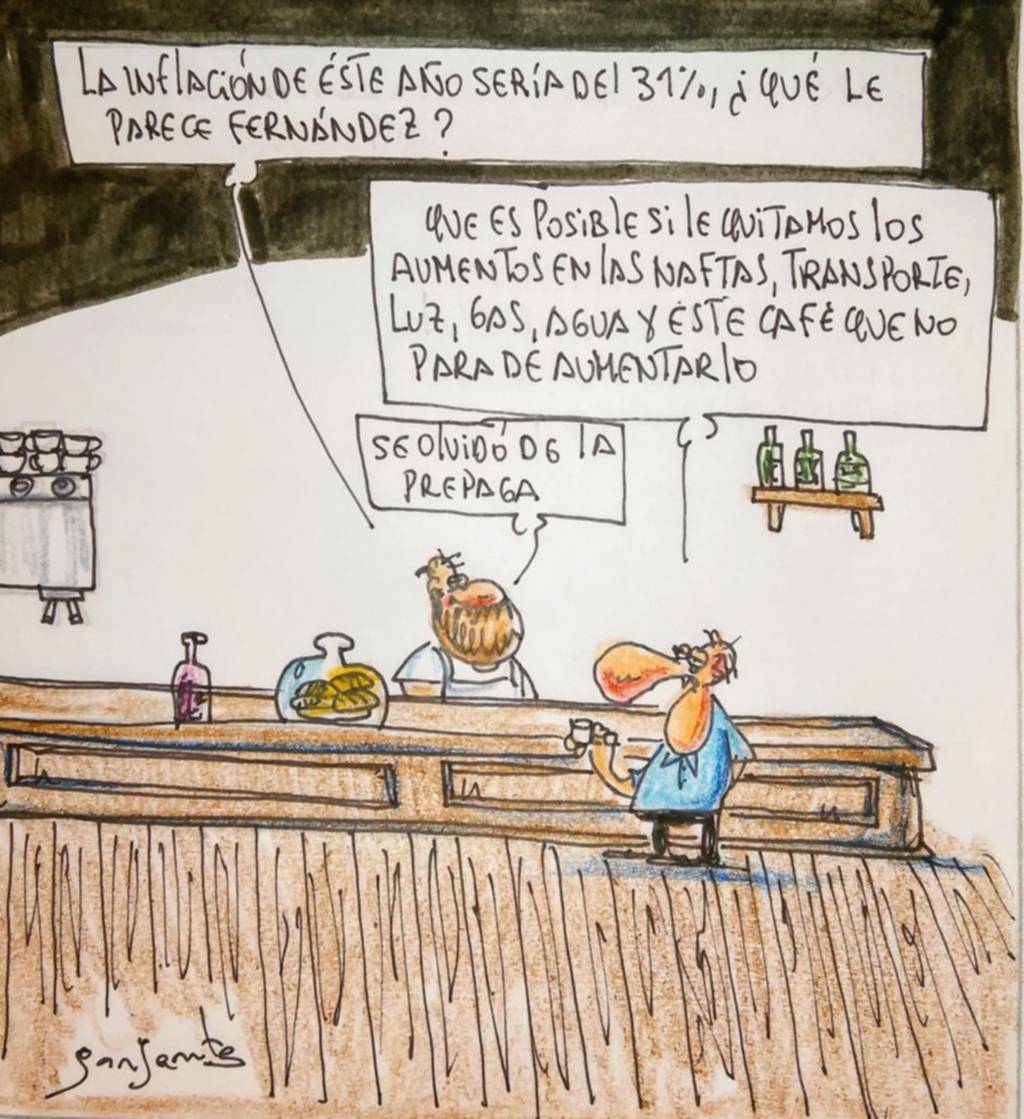 LA INFLACIÓN DE ÉSTE AÑO SERÍA DEl 31%, ¿QUÉ LE
PARECE FERNÁNDEZ?
QUE ES POSIBLE SI lE QUITAMOS lOS
AUMENTOS EN lAS NAFTAS, TRANSPORTE,
LUZ, GAS, AGUA Y ÉSTE CAFÉ QUE NO
PARA DE AUMENTARlO
SE OlVIDÓ DE lA
PREPAGA